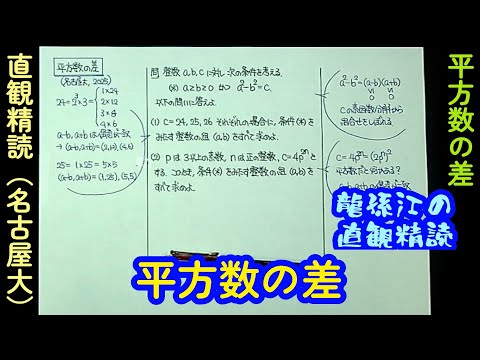 直観精読（名古屋大）
平方数の差
(名古屋大, 2025)
24=2³×3=
1×24
2×12
3×8
4×6
a-b, a+bは偶奇一致
→(a-b, a+b)=(2,12),(4,6)
25=1×25=5×5
(a-b, a+b)=(1,25),(5,5)
問 整数 a, b, c に対し次の条件を考える.
(*) a≥b≥0 かつ a²-b²=c.
以下の問いに答えよ
(1) c=24, 25, 26 それぞれの場合に, 条件(*)を
みたす整数の組(a,b)をすべて求めよ.
(2) pは3以上の素数, nは正の整数, c=4p²ⁿと
する. このとき, 条件(*)をみたす整数の組(a,b)を
すべて求めよ.
a²-b²=(a-b)(a+b)
VI VI
0 0
組合せをしぼれる.
c=4p²ⁿ=(2pⁿ)²
平方数の差
龍孫江の
直観精読
平方数の差